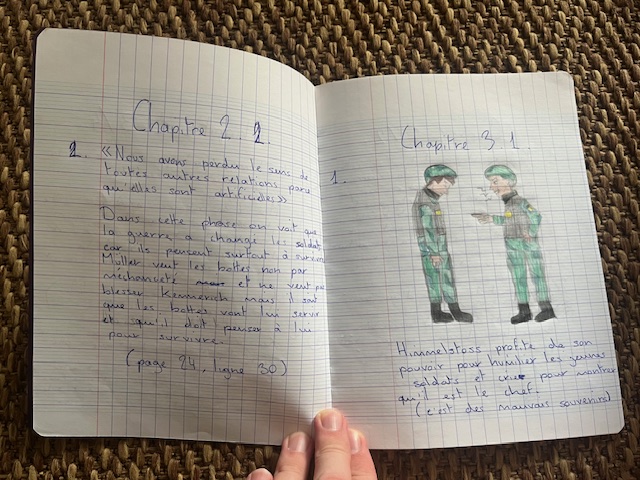 Chapitre 2. 2.
2. «Nous avons perdu le sens de
toutes autres relations parce
qu'elles sont artificielles»
Dans cette phrase on voit que
la guerre a changé les soldats
car ils pensent surtout à survivre
Müller veut les bottes non par
méchanceté et ne veut pas
blesser Kemmerich mais il sait
que les bottes vont lui servir
et qu'il doit penser à lui
pour survivre.
(page 24, ligne 30)
Chapitre 3 1.
1.
Himmelstoss profite de son
pouvoir pour humilier les jeunes
soldats et crie pour montrer
qu'il est le chef.
(c'est des mauvais souvenirs)